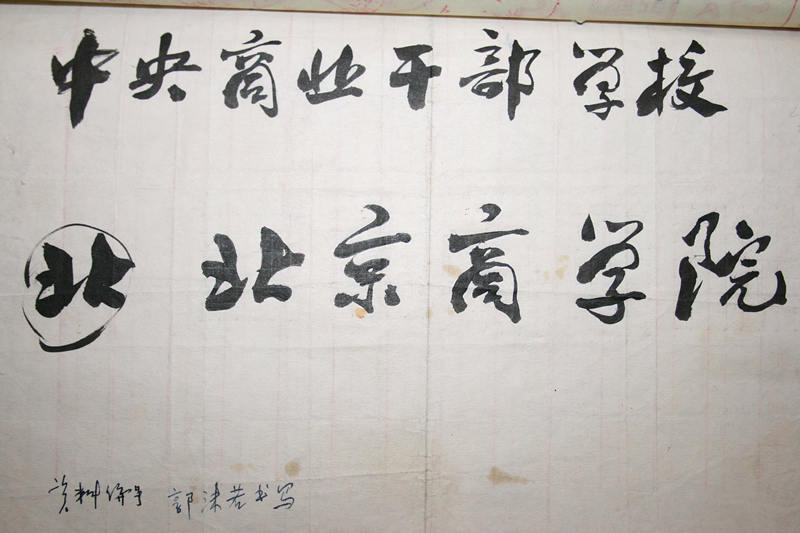 中央商业干部学校
北 北京商学院
资料编号 郭沫若书写